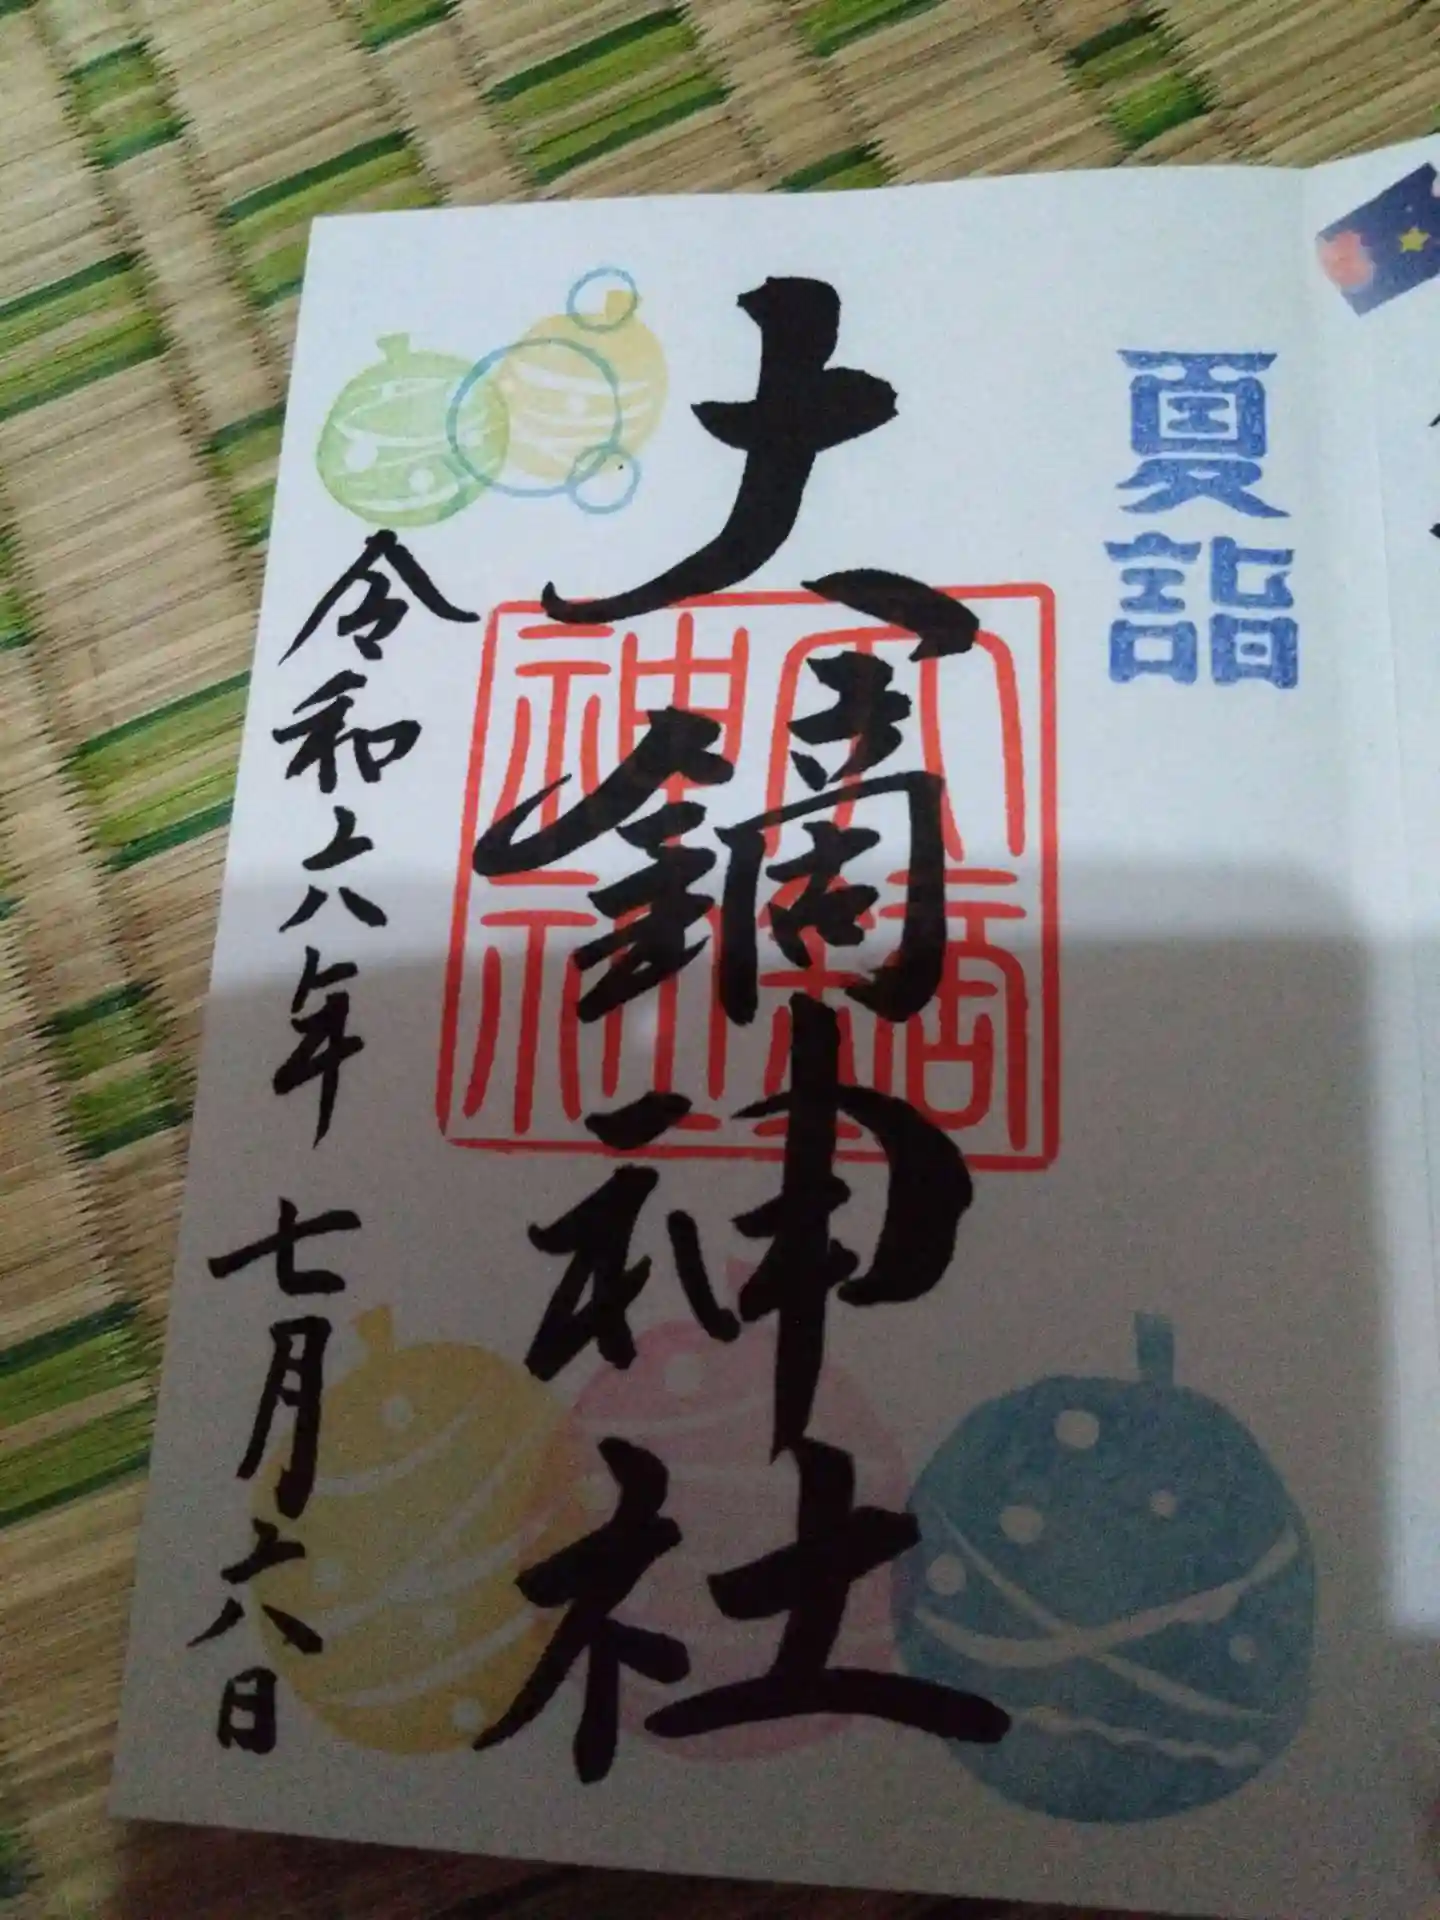 夏詣
大鏑神社
大鏑神社
令和六年 七月六日